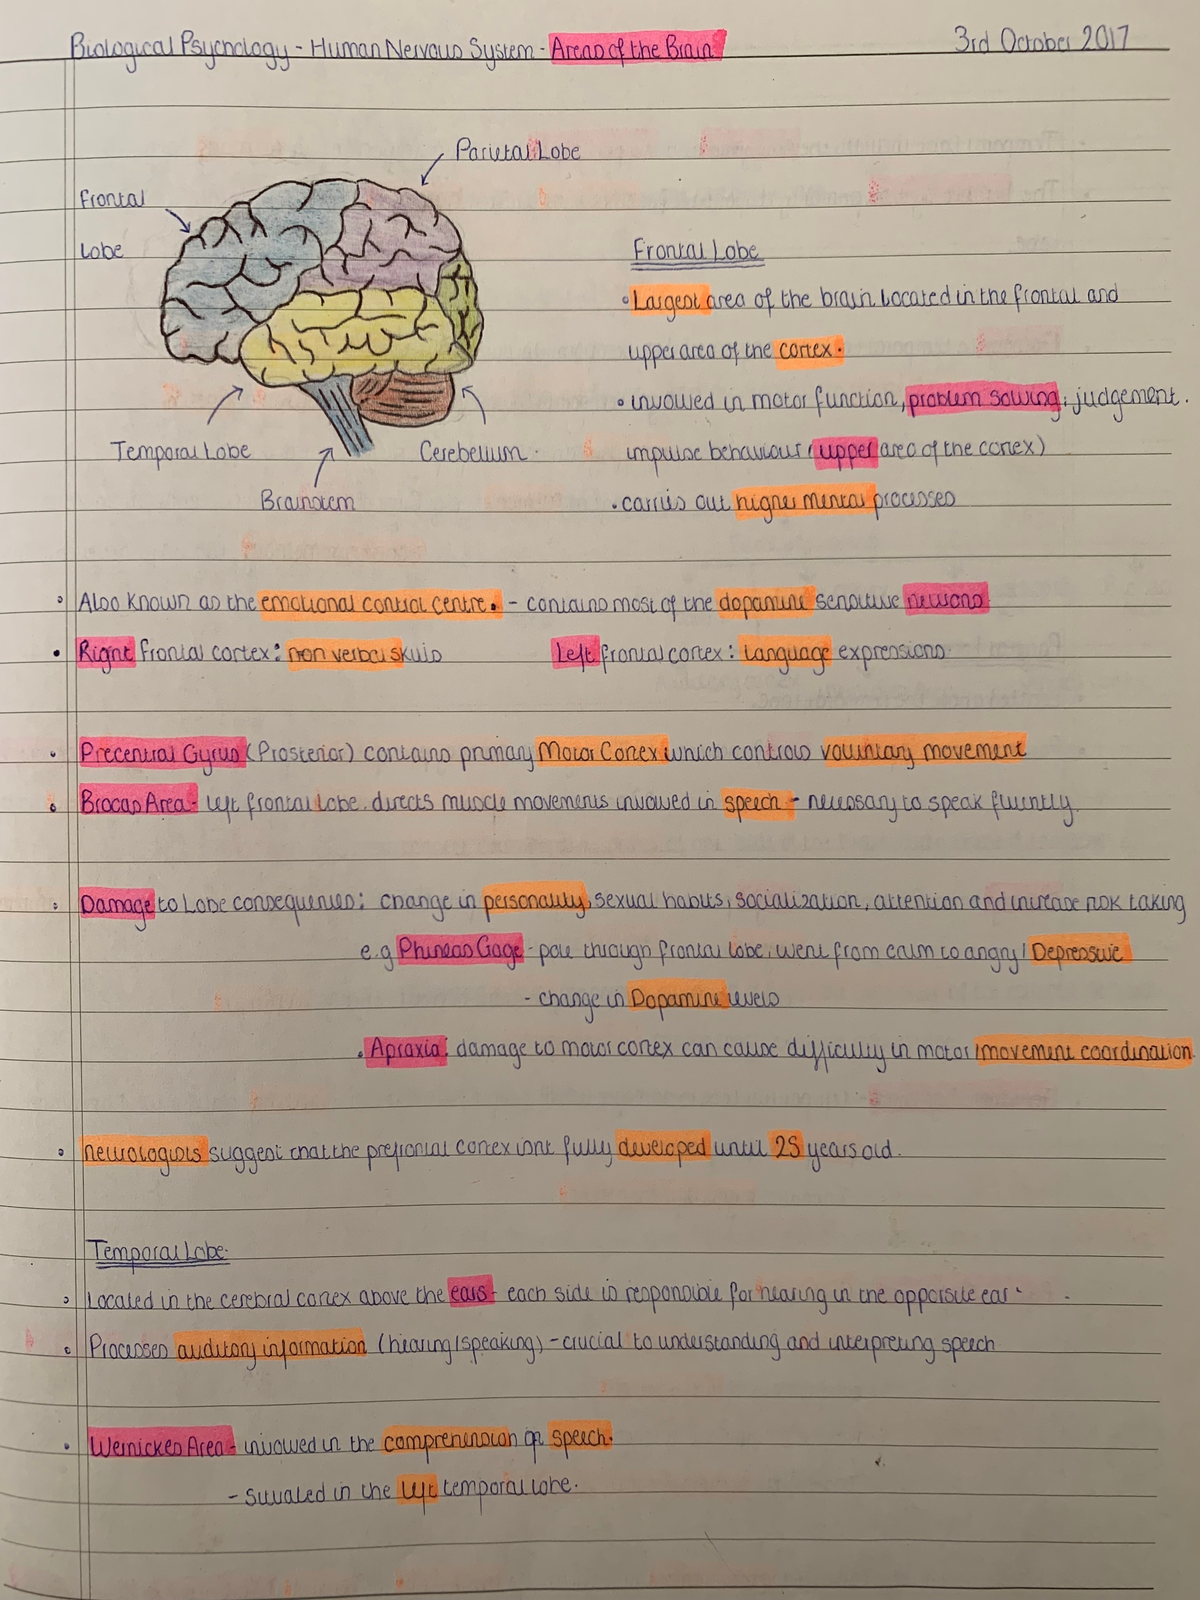 Biological Psychology - Human Nervous System - Areas of the Brain
3rd October 2017
Parietal Lobe
Frontal
Lobe
Temporal Lobe
Cerebellum
Brainstem
Frontal Lobe
• Largest area of the brain located in the frontal and
upper area of the cortex.
• involved in motor function, problem solving, judgement.
impulse behaviour (upper area of the cortex)
• carries out higher mental processes
• Also known as the emotional control centre. - contains most of the dopamine sensitive neurons
• Right frontal cortex: non verbal skills Left frontal cortex: Language expressions
• Precentral Gyrus (Prosterior) contains primary Motor Cortex which controls voluntary movement
• Brocas Area - left frontal lobe. directs muscle movements involved in speech - necessary to speak fluently.
• Damage to Lobe consequences: change in personality, sexual habits, socialization, attention and increase risk taking
e.g Phineas Gage - pole through frontal lobe, went from calm to angry/Depressive
- change in Dopamine levels
• Apraxia: damage to motor cortex can cause difficulty in motor/movement coordination
• neurologists suggest that the prefrontal cortex isnt fully developed until 25 years old.
Temporal Lobe.
• Located in the cerebral cortex above the ears - each side is responsible for hearing in the opporsite ear.
• Processes auditory information (hearing/speaking) - crucial to understanding and interpreting speech
• Wernickes Area - involved in the comprehension of speech.
- situated in the left temporal lobe.